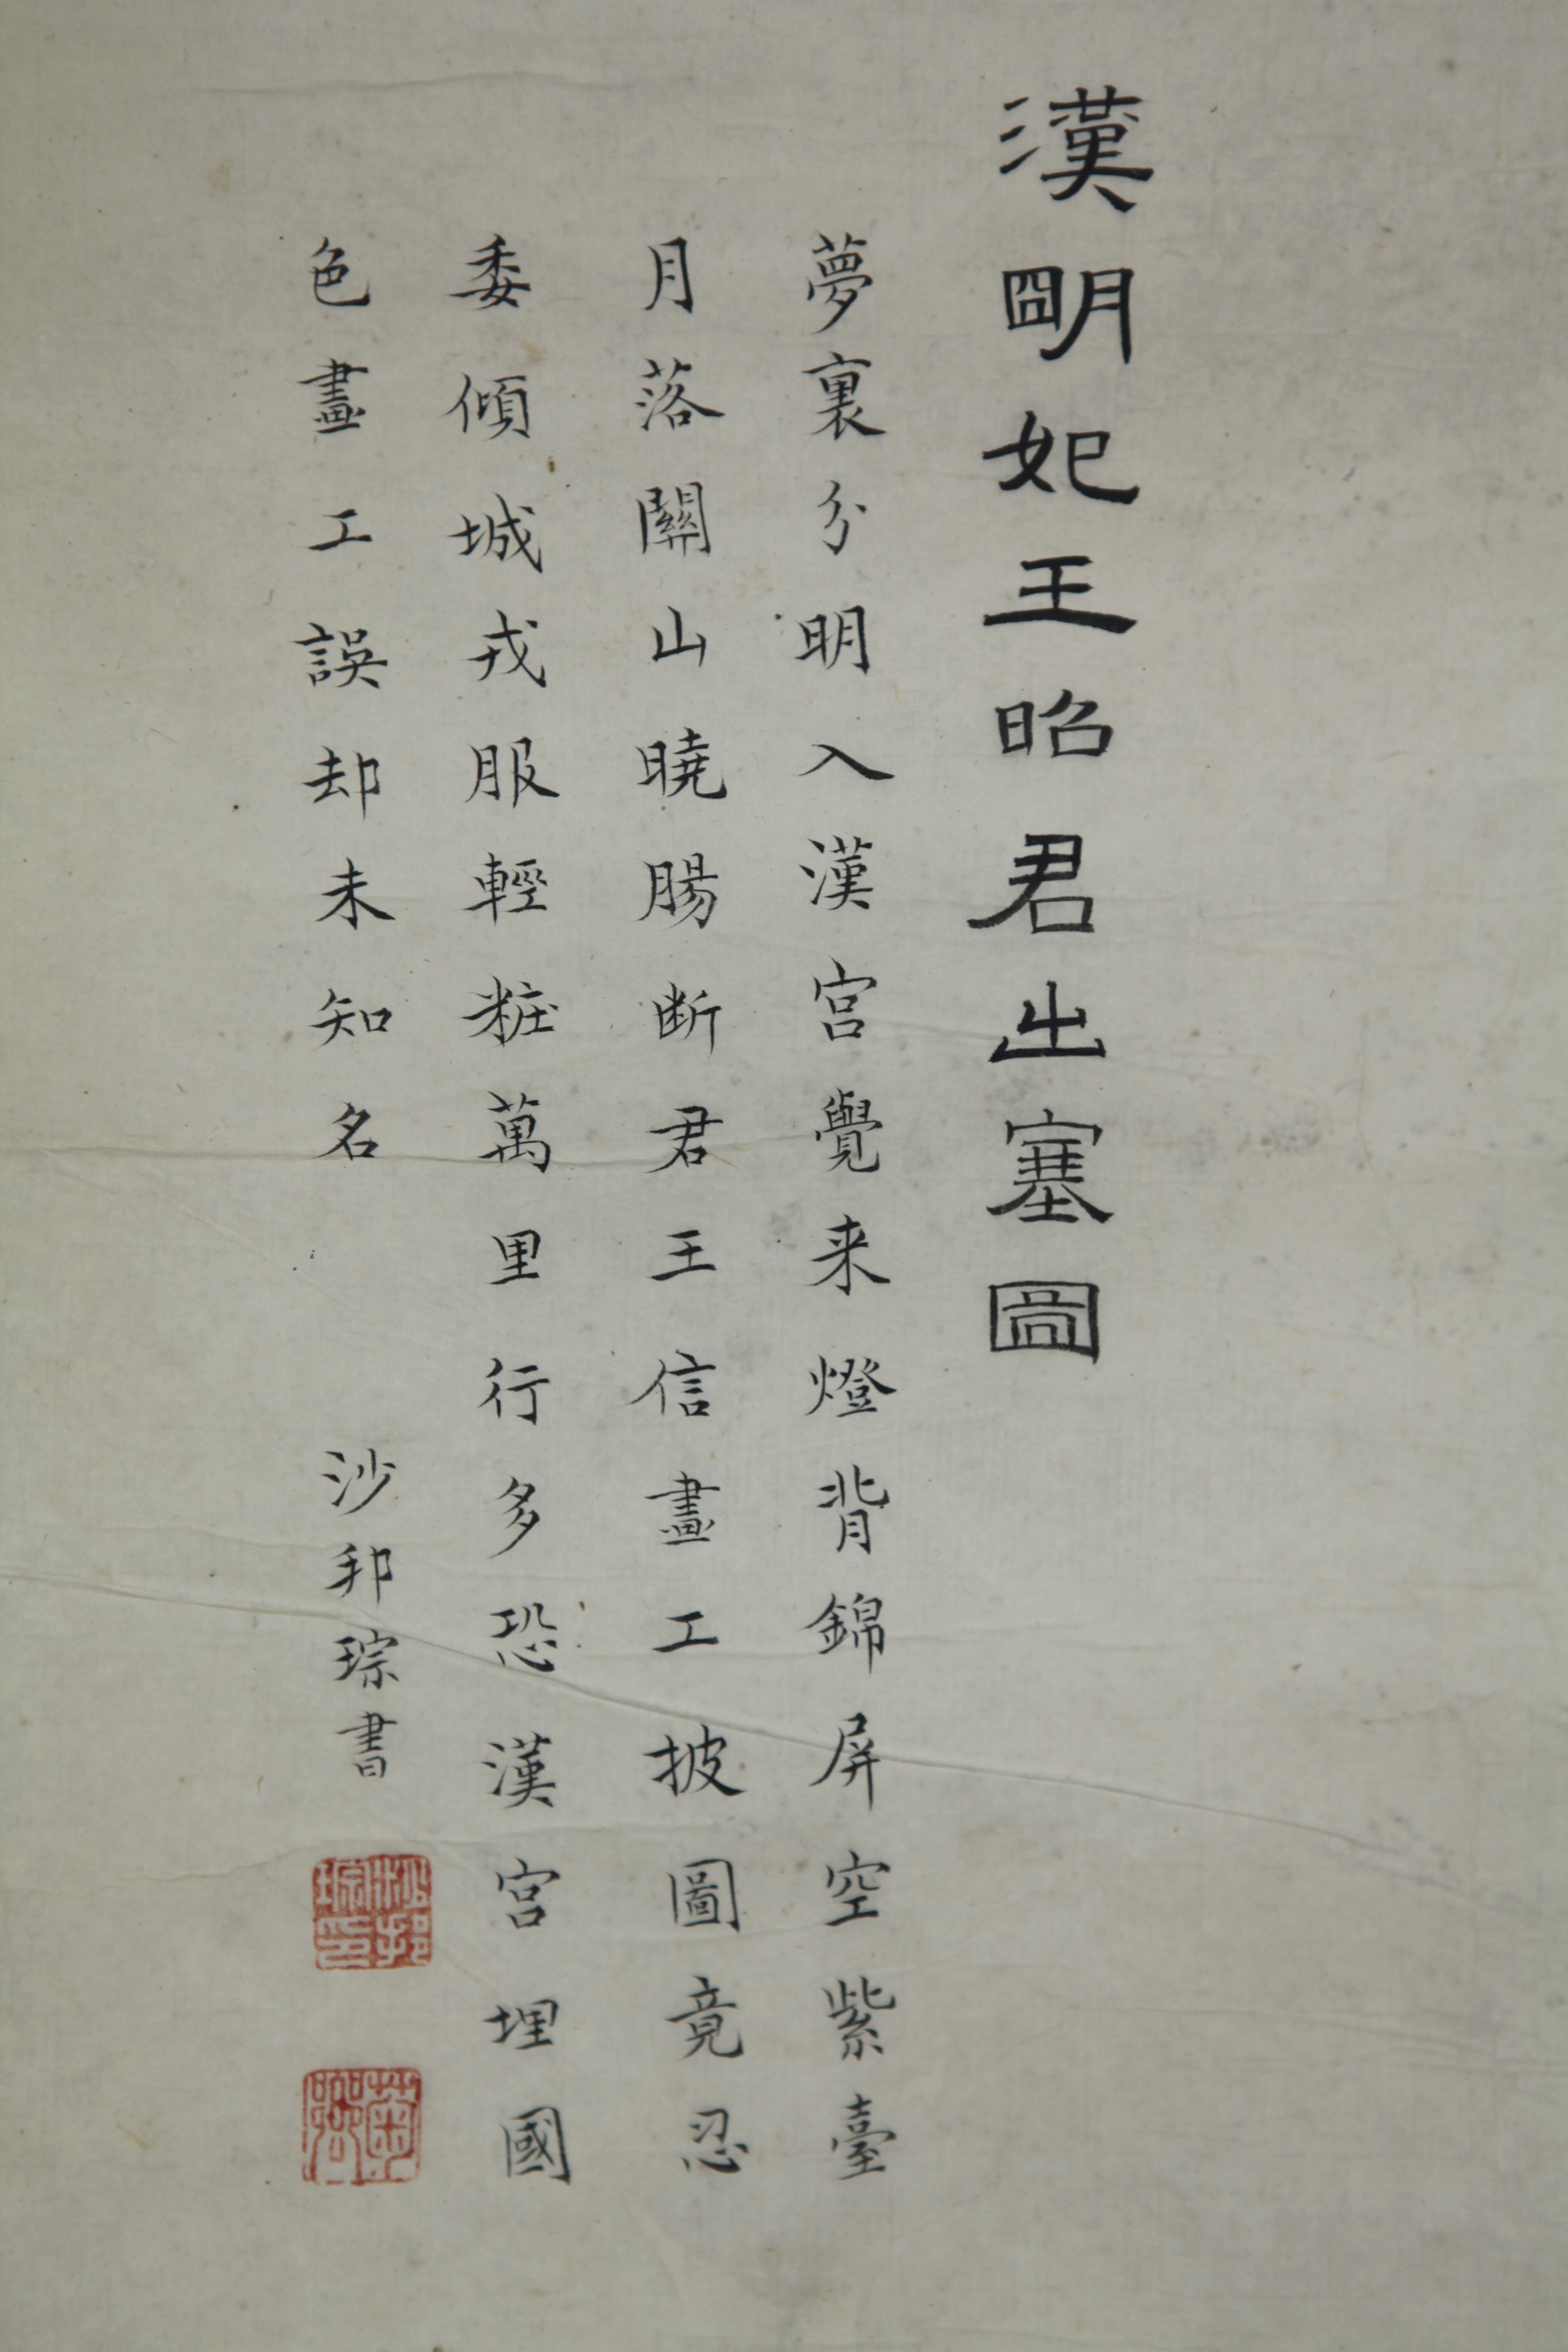 漢朙妃王昭君出塞圖
夢裏分明入漢宮覺来燈背錦屏空紫臺
月落關山曉腸断君王信畫工披圖竟忍
委傾城戎服輕粧萬里行多恐漢宮埋國
色畫工誤却未知名
沙邦琮書